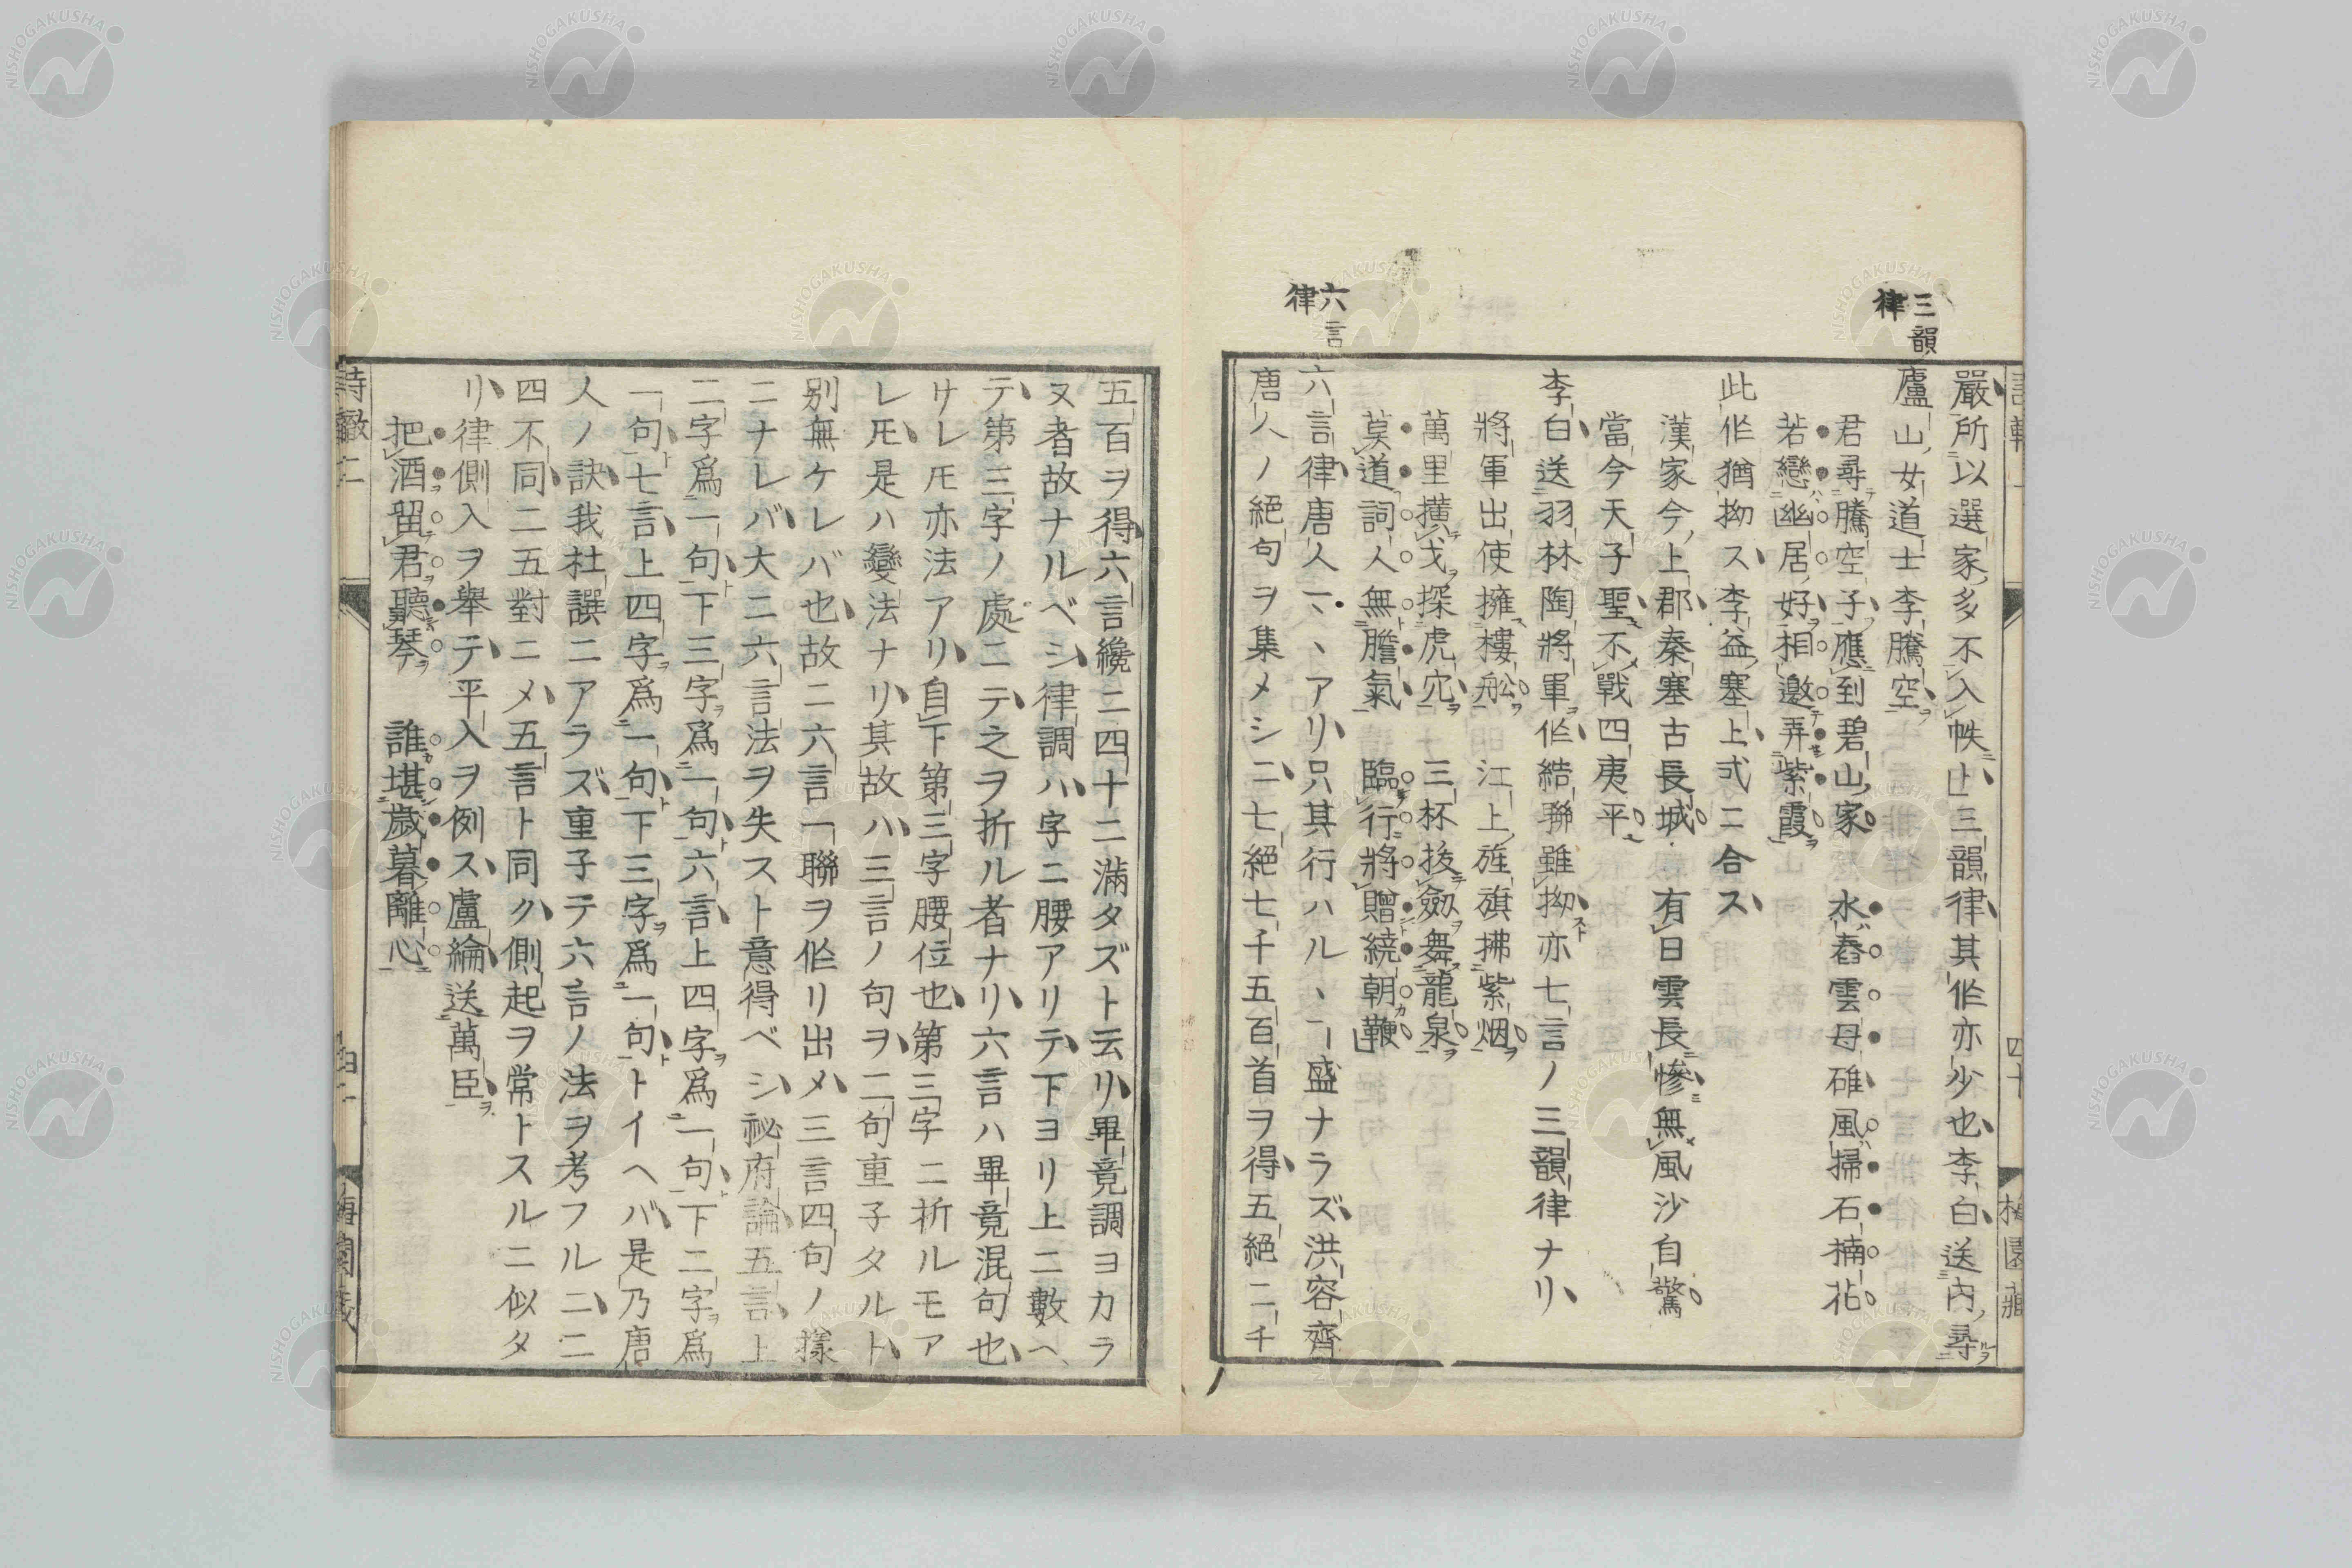 三韻
律
六言
律
嚴所以選家多不入帙ニ、三韻律其作亦少也李白送内尋
廬山女道士李騰空
君尋騰空子應到碧山家 水舂雲母碓風掃石楠花
若戀幽居好相邀弄紫霞
此作猶拗ス李益塞上ハ式ニ合ス
漢家今上郡秦塞古長城 有日雲長慘無風沙自驚
當今天子聖不戰四夷平
李白送羽林陶將軍作結聯雖拗亦七言ノ三韻律ナリ
將軍出使擁樓舩 江上旌旗拂紫烟
萬里橫戈探虎穴 三杯拔劍舞龍泉
莫道詞人無膽氣 臨行將贈繞朝鞭
六言律唐人一、、アリ只其行ハル、ヿ盛ナラズ洪容齊
唐人ノ絕句ヲ集メシニ七絕七千五百首ヲ得五絕二千
五百ヲ得六言纔ニ四十ニ滿タズト云リ畢竟調ヨカラ
ヌ者故ナルベシ律調ハ字ニ腰アリテ下ヨリ上ニ數ヘ
テ第三字ノ處ニテ之ヲ折ル者ナリ六言ハ畢竟混句也
サレ𪜈亦法アリ自下第三字腰位也第三字ニ折ルモア
レ𪜈是ハ變法ナリ其故ハ三言ノ句ヲ二句重子タルト
別無ケレバ也故ニ六言一聯ヲ作リ出メ三言四句ノ樣
ニナレバ大ニ六言法ヲ失スト意得ベシ祕府論五言上
二字爲一句下三字爲一句六言上四字爲一句下二字爲
一句七言上四字爲一句下三字爲一句トイヘバ是乃唐
人ノ訣我杜譔ニアラズ重子テ六言ノ法ヲ考フルニ二
四不同二五對ニメ五言ト同ク側起ヲ常トスルニ似タ
リ律側入ヲ舉テ平入ヲ例ス盧綸送萬臣
把酒留君聽琴 誰堪歲暮離心
詩轍二
四十
梅園藏